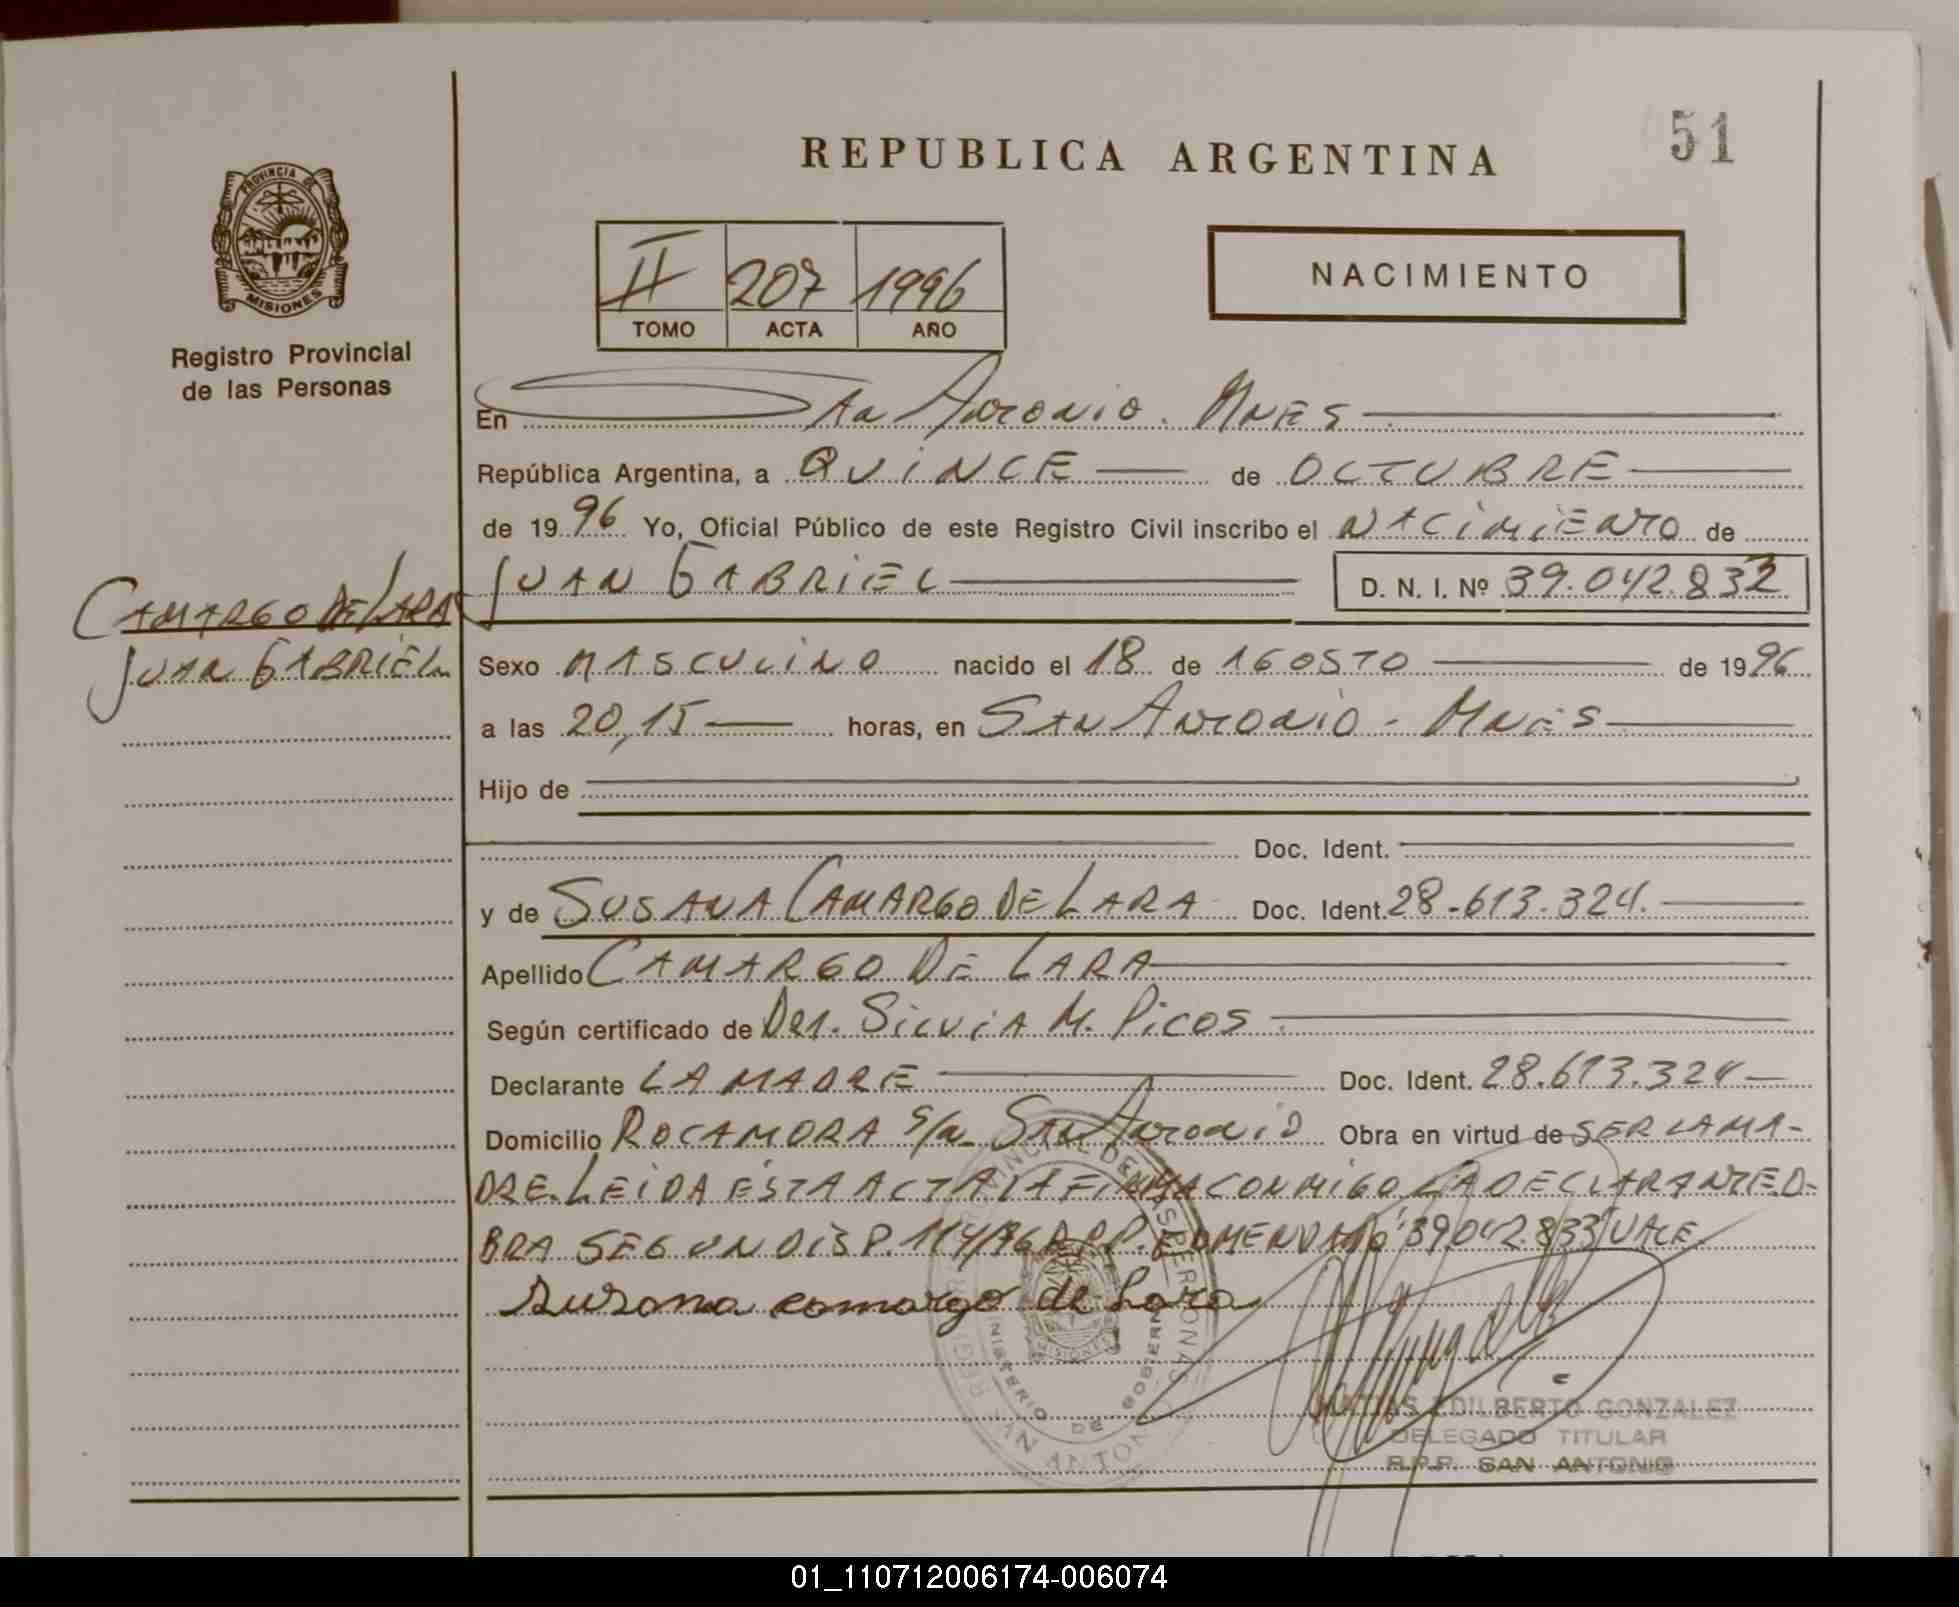 51
REPUBLICA ARGENTINA
PROVINCIA DE
MISIONES
Registro Provincial
de las Personas
II 207 1996
TOMO ACTA AÑO
NACIMIENTO
En San Antonio. Mnes
República Argentina, a QUINCE de OCTUBRE
de 1996 Yo, Oficial Público de este Registro Civil inscribo el NACIMIENTO de
CAMARGO DE LARA
JUAN GABRIEL
JUAN GABRIEL D. N. I. Nº 39.042.832
Sexo MASCULINO nacido el 18 de AGOSTO de 1996
a las 20,15 horas, en SAN ANTONIO - MNES
Hijo de
Doc. Ident.
y de SUSANA CAMARGO DE LARA Doc. Ident. 28.613.324.
Apellido CAMARGO DE LARA
Según certificado de SILVIA M. PICOS
Declarante LA MADRE Doc. Ident. 28.613.324
Domicilio ROCAMORA S/n SAN ANTONIO Obra en virtud de SER LA MA-
DRE. LEIDA ESTA ACTA LA FIRMA CONMIGO LA DECLARANTE. O-
BRA SEGUN DISP. 114/96 R.P.P. ENMENDADO 39.042.833 VALE
Susana camargo de Lara
REGISTRO PROVINCIAL DE LAS PERSONAS
MINISTERIO DE GOBIERNO
MISIONES
SAN ANTONIO
EDILBERTO GONZALEZ
DELEGADO TITULAR
R.P.P. SAN ANTONIO
01_110712006174-006074